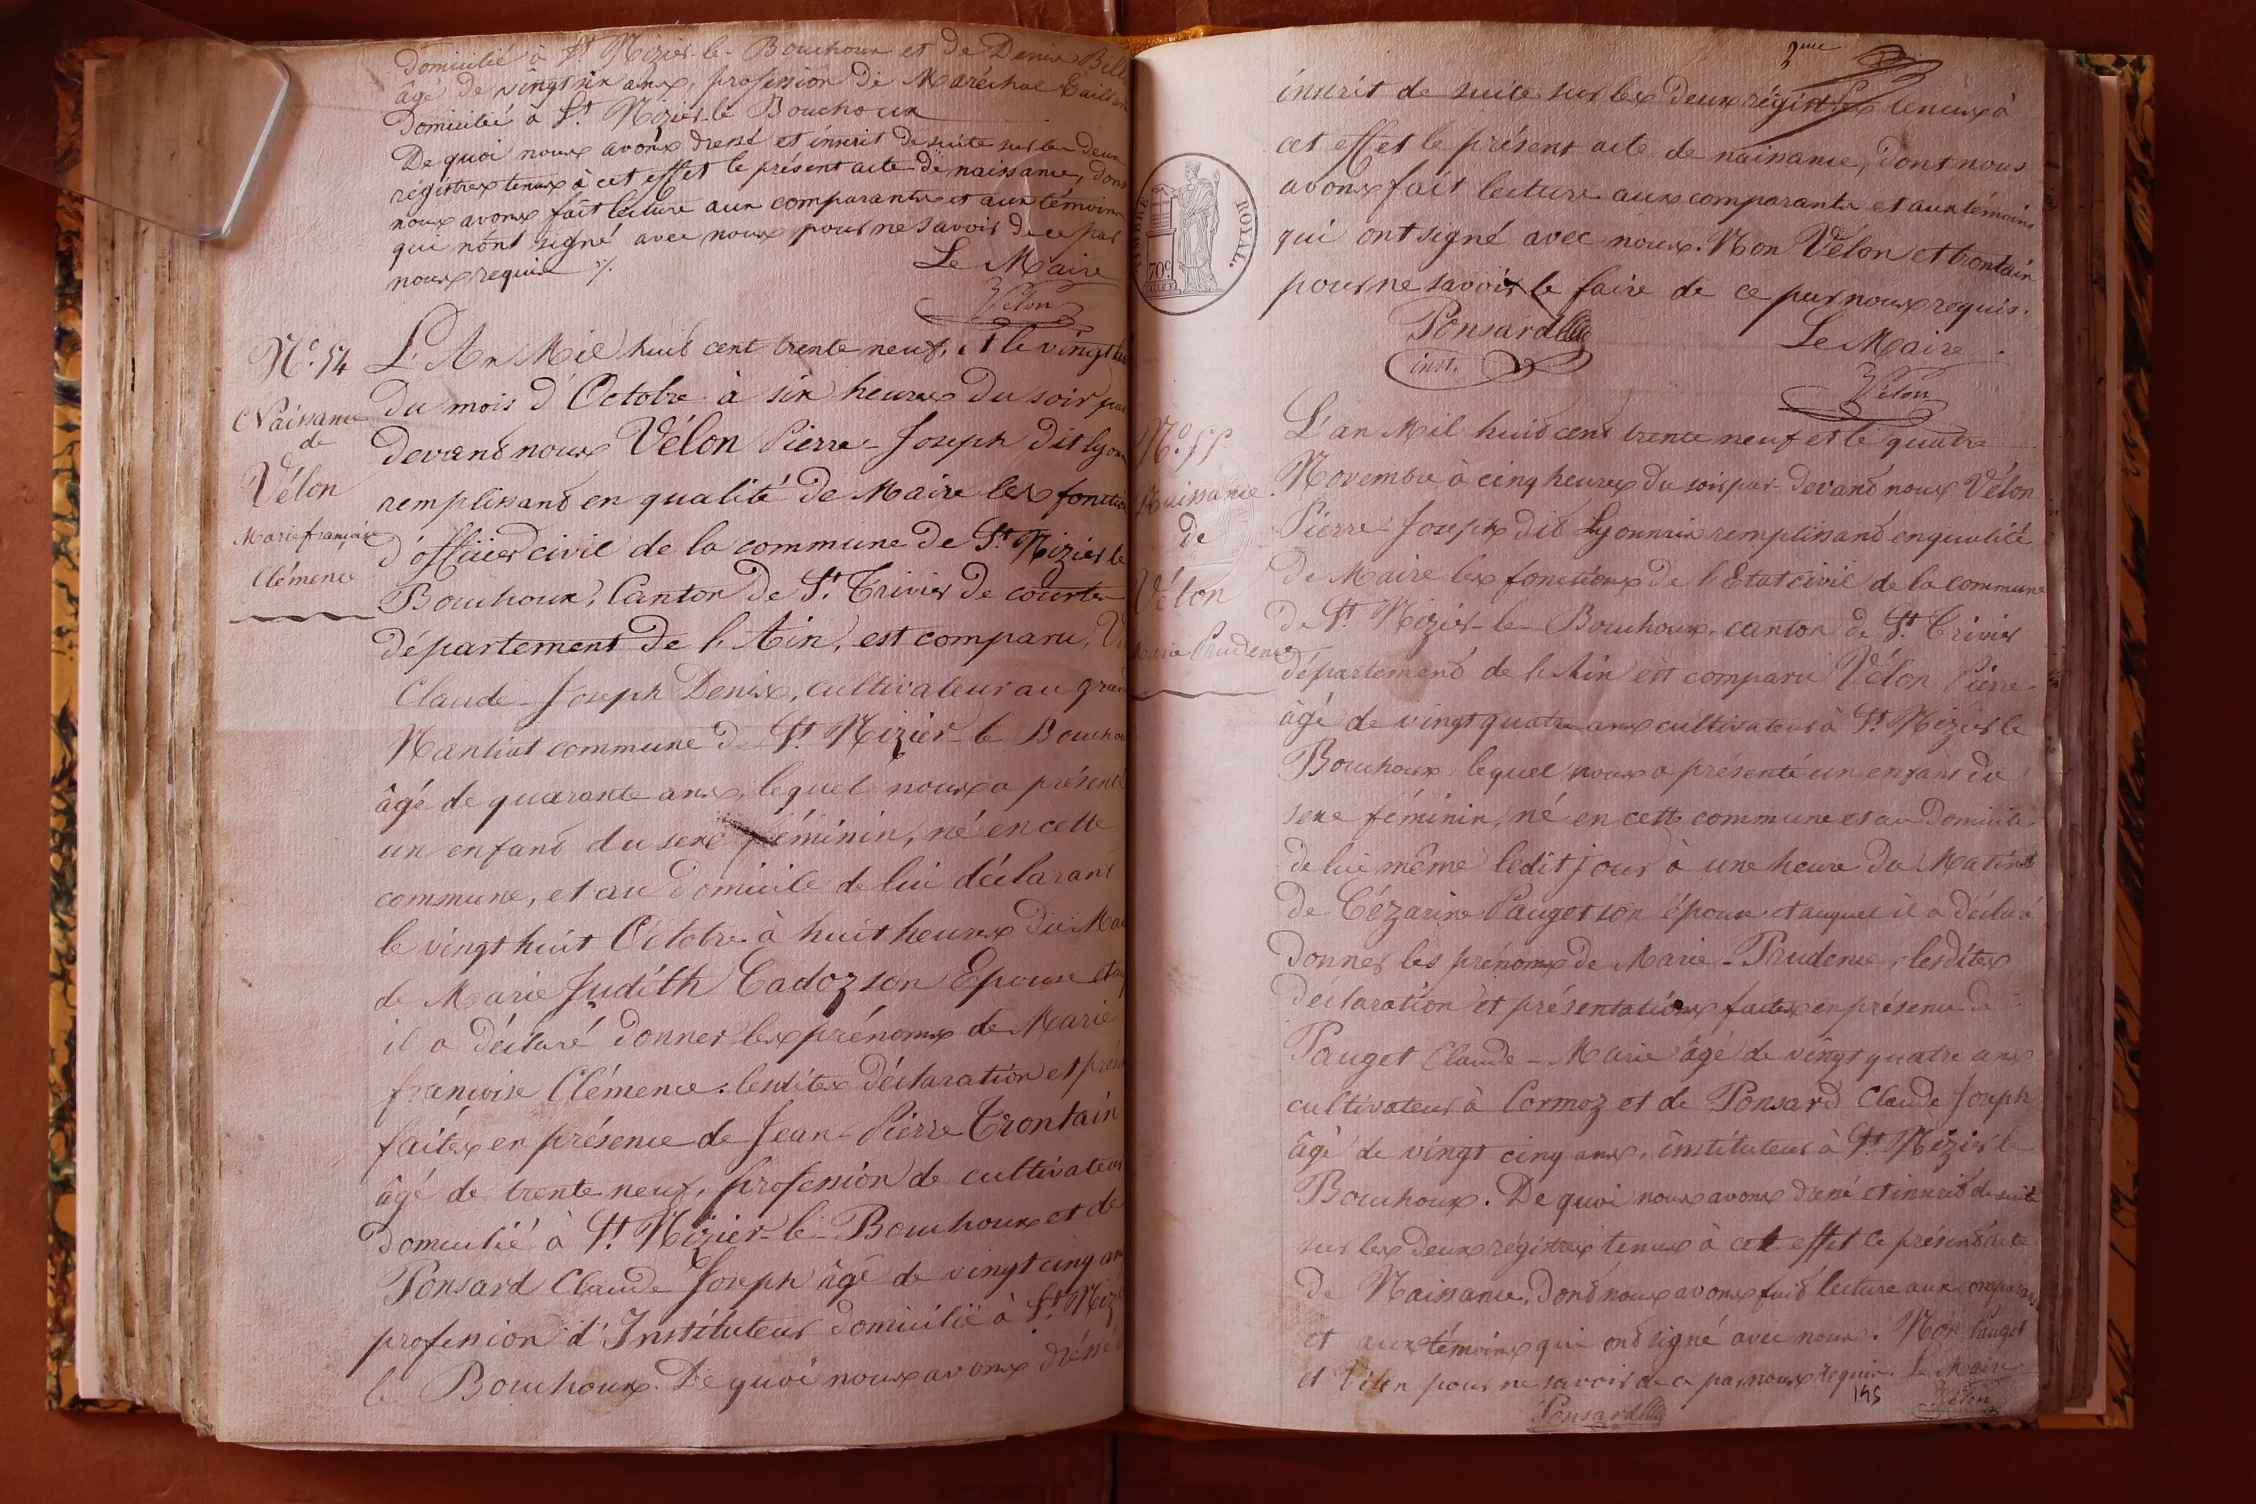 domicilié à St Nizier-le-Bouchoux et de Denis
âgé de vingt six ans, profession de Maréchal
domicilié à St Nizier-le Bouchoux
De quoi nous avons dressé et inscrit de suite sur les deux
régistres tenus à cet effet le présent acte de naissance, dont
nous avons fait lecture aux comparants et aux témoins
qui n'ont signé avec nous pour ne savoir de ce par
nous requis ./.
Le Maire
Vélon
N°. 54
Naissance
de
Vélon
Marie françoise
Clémence
L'An Mil huit cent trente neuf, et le vingt
du mois d'Octobre à six heures du soir par
devant nous Vélon Pierre-Joseph dit Lyon
remplissant en qualité de Maire les fonction
d'officier civil de la commune de St Nizier le
Bouchoux, Canton de St. Trivier de courtes
département de l'Ain, est comparu,
Claude-Joseph Denis, cultivateur au
Nantiat commune de St. Nizier-le Boucho
âgé de quarante ans, lequel nous a présenté
un enfant du sexe féminin, né en cette
commune, et au domicile de lui déclarant
le vingt huit Octobre à huit heures du Ma
de Marie Judith Cadoz son Epouse et
il a déclaré donner les prénoms de Marie
françoise Clémence. lesdites déclaration et prés
faites en présence de Jean-Pierre Trontain
âgé de trente neuf, profession de cultivateur
domicilié à St. Nizier-le-Bouchoux et de
Ponsard Claude Joseph âgé de vingt cinq an
profession d'Instituteur domicilié à St. Niz
le Bouchoux. De quoi nous avons dréssé
2me
inscrit de suite sur les deux régistres tenus à
cet effet le présent acte de naissance, dont nous
avons fait lecture aux comparants et aux témoins
qui ont signé avec nous. Non Vélon et trontain
pour ne savoir le faire de ce par nous requis.
TIMBRE ROYAL.
70c
Ponsard
inst.
Le Maire
Vélon
N°. 55
Naissance
de
Vélon
Marie Prudence
L'an Mil huit cent trente neuf et le quatre
Novembre à cinq heures du soir par-devant nous Vélon
Pierre-Joseph dit Lyonnais remplissant en qualité
de Maire les fonctions de l'Etat civil de la commune
de St. Nizier-le-Bouchoux, canton de St. Trivier
département de l'Ain est comparu Vélon Pierre
âgé de vingt quatre ans cultivateur à St. Nizier le
Bouchoux, lequel nous a présenté un enfant du
sexe féminin, né en cette commune et au domicile
de lui même ledit jour à une heure du Matin
de Cézarine Pauget son épouse et auquel il a déclaré
donner les prénoms de Marie-Prudence, lesdites
déclaration et présentations faites en présence de
Pauget Claude-Marie âgé de vingt quatre ans
cultivateur à Cormoz et de Ponsard Claude Joseph
âgé de vingt cinq ans, instituteur à St. Nizier le
Bouchoux. De quoi nous avons dressé et inscrit de suite
sur les deux régistres tenus à cet effet le présent acte
de Naissance, dont nous avons fait lecture aux comparans
et aux témoins qui ont signé avec nous. Non Pauget
et Vélon pour ne savoir de ce par nous requis. Le Maire
145
Ponsard
Vélon